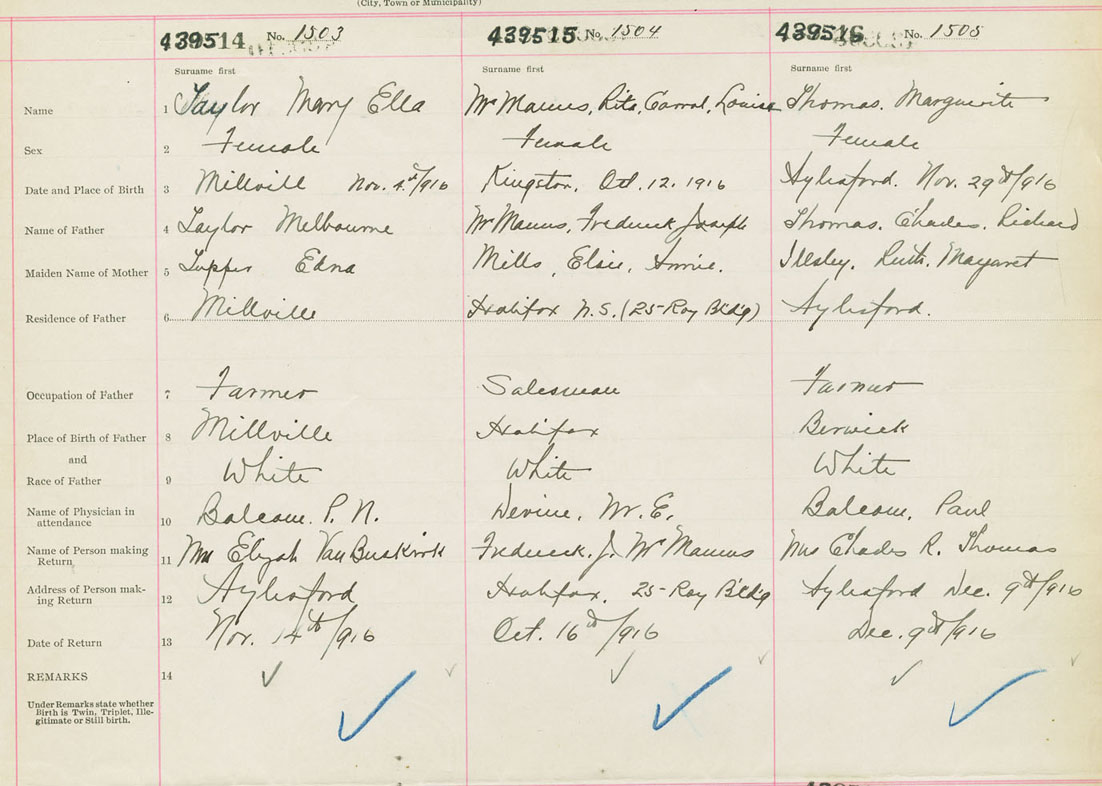 (City, Town or Municipality)
439514 No. 1503 439515 No. 1504 439516 No. 1505
Surname first Surname first Surname first
Name 1 Taylor Mary Ella McManus, Rita, Carmel, Louise Thomas. Marguerite
Sex 2 Female Female Female
Date and Place of Birth 3 Millvill Nov. 4th/916 Kingston, Oct. 12. 1916 Aylesford. Nov. 29th/916
Name of Father 4 Taylor Melbourne McManus, Frederick Joseph Thomas. Charles. Richard
Maiden Name of Mother 5 Tupper Edna Mills, Elsie, Annie. Illsley. Ruth. Margaret
Residence of Father 6 Millville Halifax N.S. (25-Roy Bldg) Aylesford.
Occupation of Father 7 Farmer Salesman Farmer
Place of Birth of Father 8 Millville Halifax Berwick
and
Race of Father 9 White White White
Name of Physician in
attendance 10 Balcom. P. N. Devine, W. E. Balcom, Paul
Name of Person making
Return 11 Mrs Elijah VanBuskirk Frederick. J. McManus Mrs Charles R. Thomas
Address of Person mak-
ing Return 12 Aylesford Halifax. 25-Roy Bldg Aylesford Dec. 9th/916
Date of Return 13 Nov. 14th/916 Oct. 16th/916 Dec. 9th/916
REMARKS 14
Under Remarks state whether
Birth is Twin, Triplet, Ille-
gitimate or Still birth.